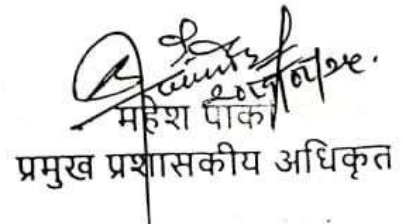 महेश पाका
प्रमुख प्रशासकीय अधिकृत